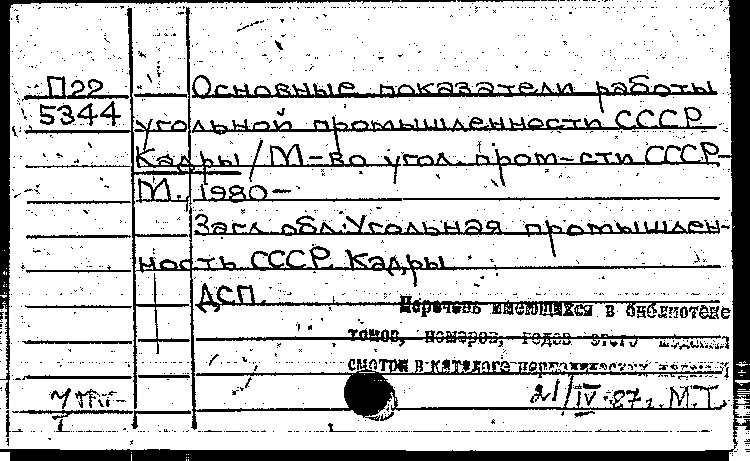 П22
5344
Основные показатели работы
угольной промышленности СССР
Кадры / М-во угол. пром-сти СССР.-
М., 1980-
Загл. обл.: Угольная промышлен-
ность СССР. Кадры
ДСП.
Перечень имеющихся в библиотеке
томов, номеров, годов этого издания
смотри в каталоге периодических изданий
21/IV-87г. М.Т.